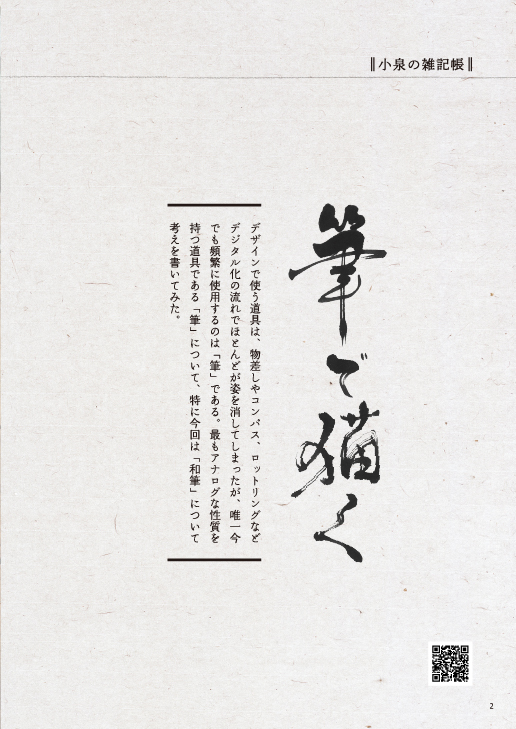 小泉の雑記帳
筆で描く
デザインで使う道具は、物差しやコンパス、ロットリングなど
デジタル化の流れでほとんどが姿を消してしまったが、唯一今
でも頻繁に使用するのは「筆」である。最もアナログな性質を
持つ道具である「筆」について、特に今回は「和筆」について
考えを書いてみた。
2